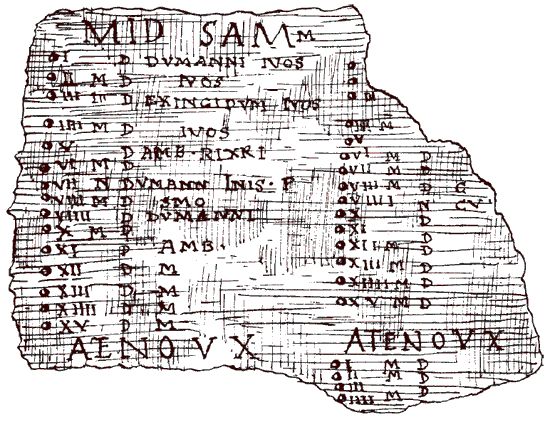 MID SAM M
I D DVMANNI IVOS
II M D IVOS
III D EXINGIDVM IVOS
IIII M D IVOS
V D AMB·RIXRI
VI M D
VII N DVMANN INIS·F
VIIII M D SMO
VIIII D DVMANNI
X M D
XI D AMB·
XII D M
XIII D M
XIIII D M
XV D M
ATENOVX
N
IIII M
V
VI M D
VII M D
VIIII M D G
VIIII N CV
X D
XI D
XII M D
XIII M D
XIIII M D
XV M D
ATENOVX
I M D
II M D
III
IIII M D